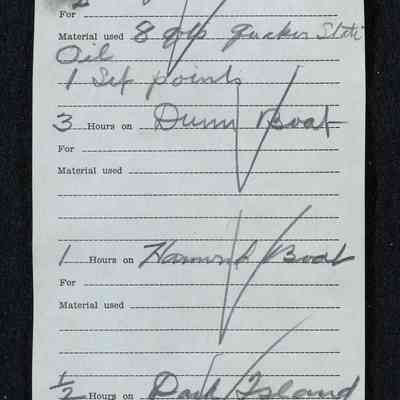 For
Material used 8 qts Quaker State
Oil
1 Set points
3 Hours on Dunn Boat
For
Material used
1 Hours on Boat
For
Material used
1/2 Hours on Dark Island